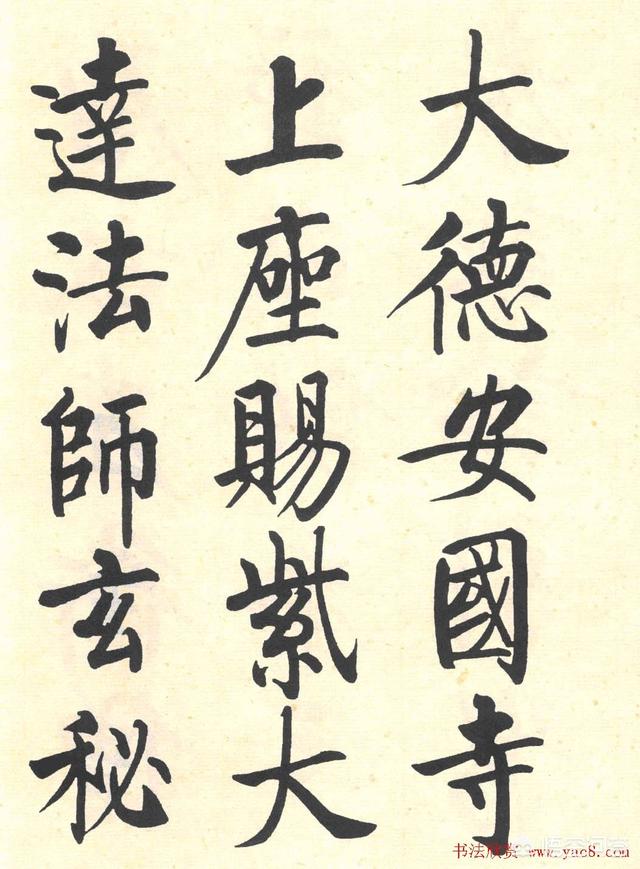 大德安國寺
上座賜紫大
達法師玄秘
书法欣赏 www.yac8.com
悟空问答